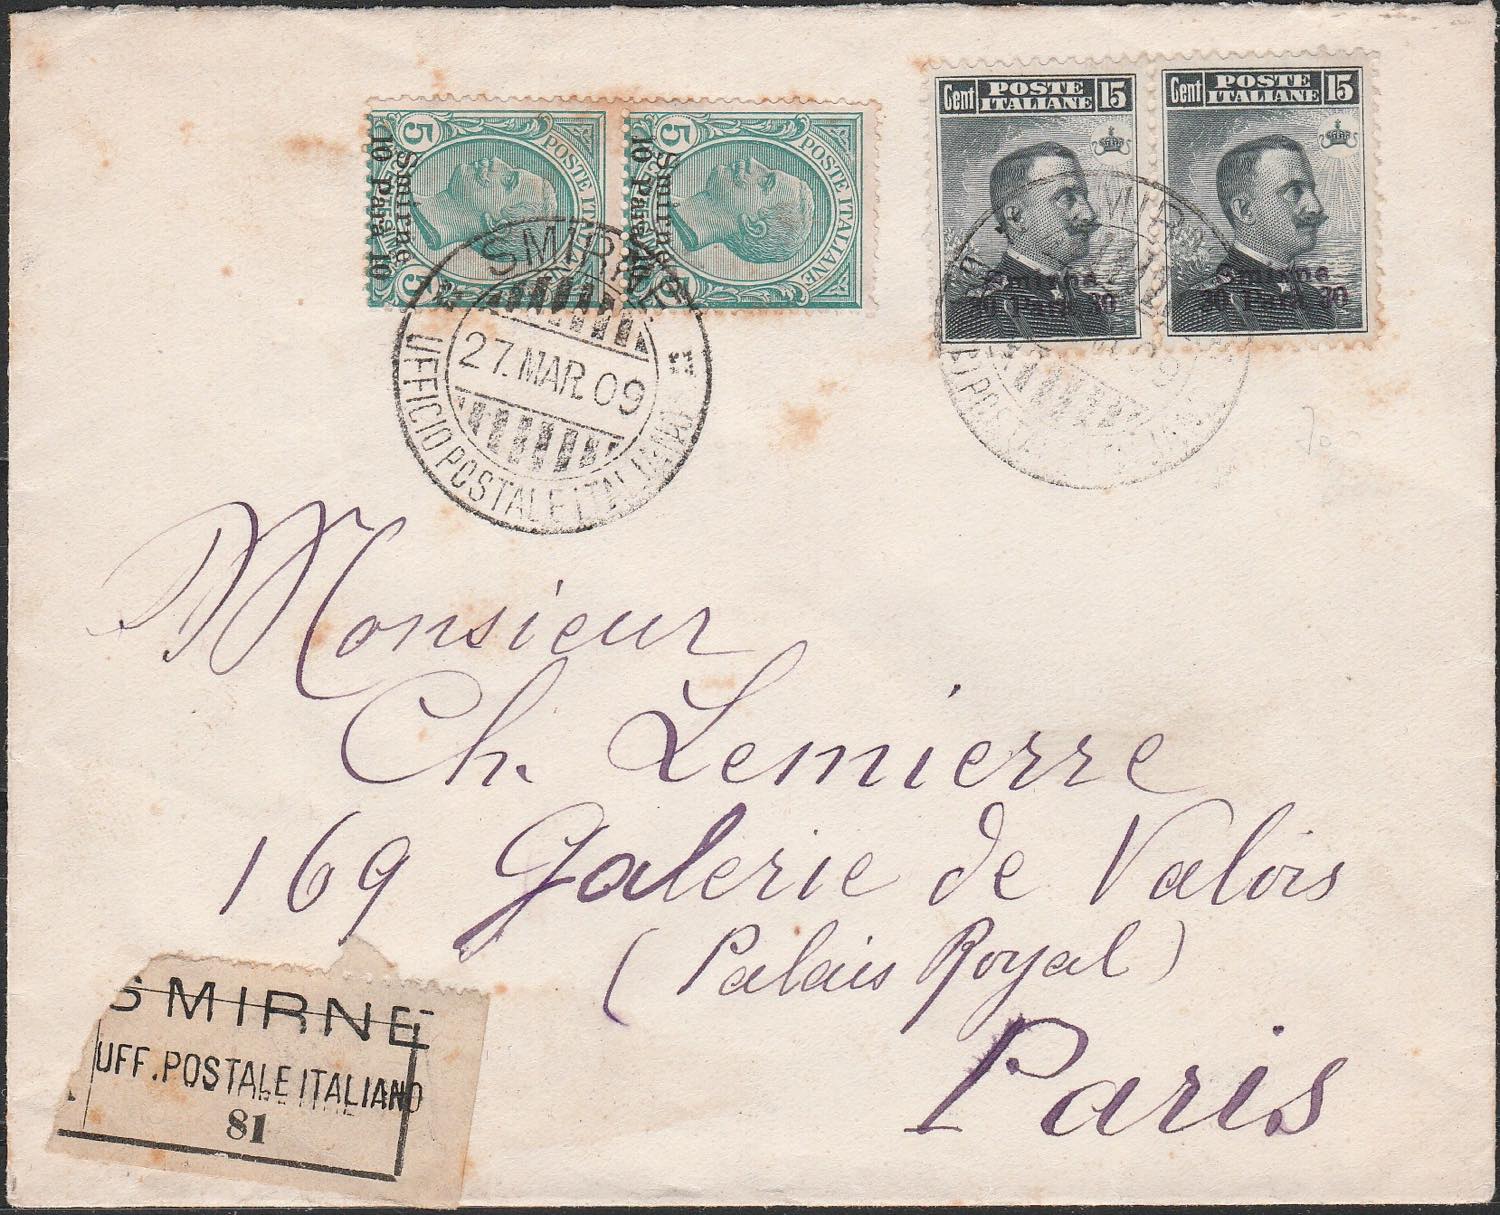 5 POSTE ITALIANE 5
Smirne
10 Para 10
5 POSTE ITALIANE 5
Smirne
10 Para 10
Cent POSTE ITALIANE 15
Smirne
30 Para 30
Cent POSTE ITALIANE 15
Smirne
30 Para 30
SMIRNE
27.MAR.09
UFFICIO POSTALE ITALIANO
Monsieur
Ch. Lemierre
169 Galerie de Valois
(Palais Royal)
Paris
SMIRNE
UFF. POSTALE ITALIANO
81